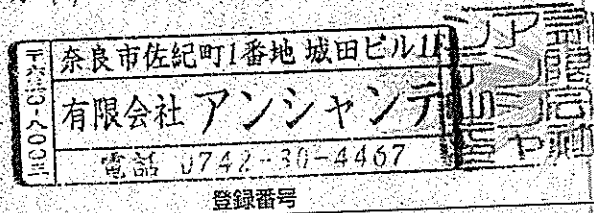 〒六三〇-八〇〇三
奈良市佐紀町1番地 城田ビル1F
有限会社 アンシャンテ
電話 0742-30-4467
登録番号